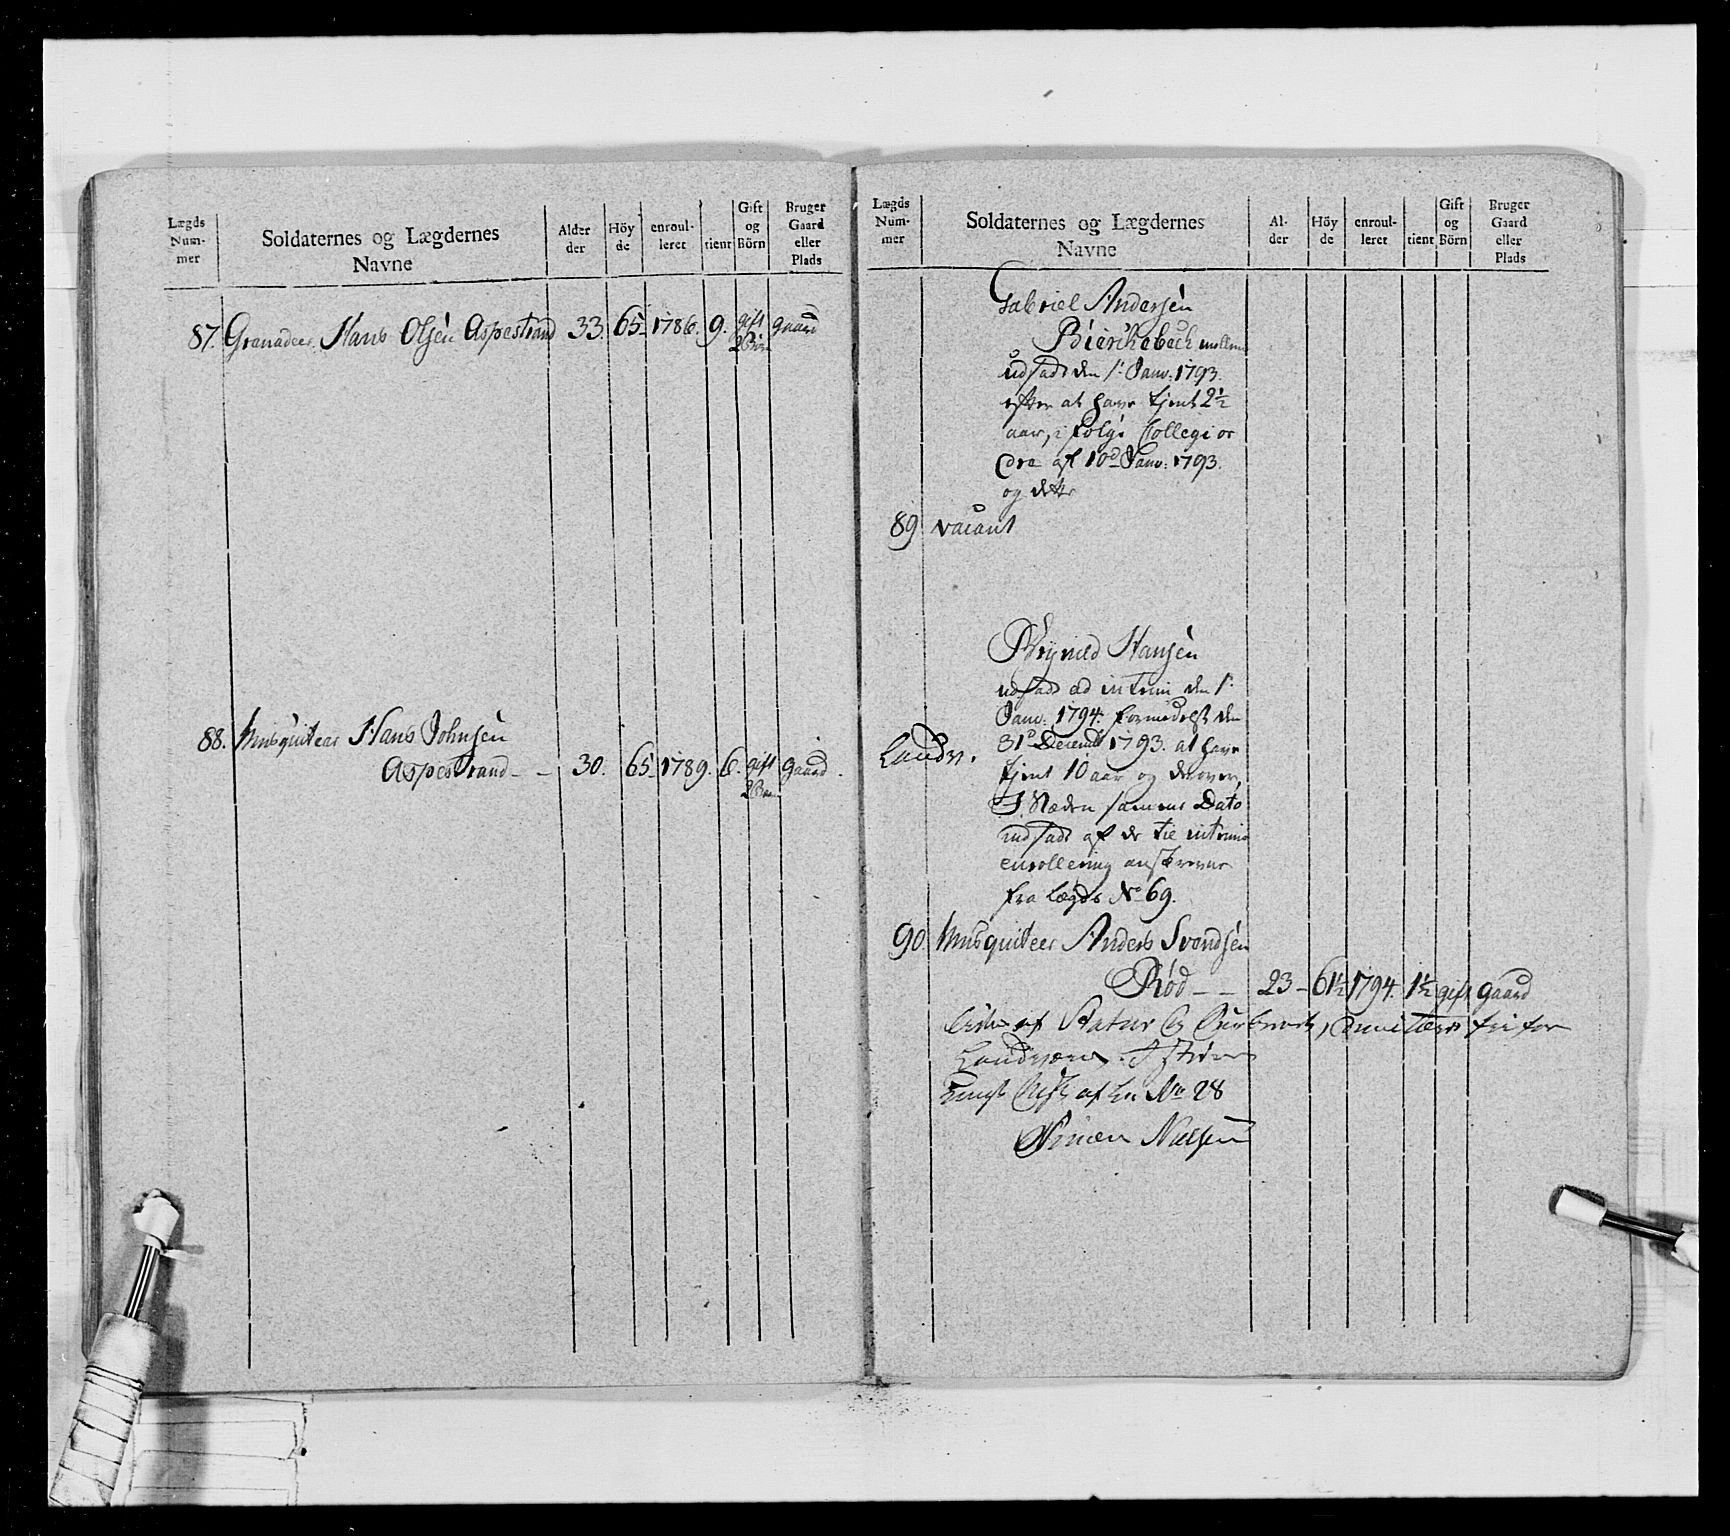 Lægds Num- mer
Soldaternes og Lægdernes Navne
Alder der
Höy de
enroul- leret
tient
Gift og Börn
Bruger Gaard eller Plads
87. Granadeer Hans Olsen Aspestrand 33. 65. 1786. 9. gift 2 Börn gaard
88. Musquiteer Hans Johnsen
Aspestrand - - 30. 65. 1789. 6. gift 2 Börn gaard.
Lægds Num- mer
Soldaternes og Lægdernes Navne
Al- der
Höy de
enroul- leret
tient
Gift og Börn
Bruger Gaard eller Plads
Gabriel Andersen
Bierchebech
udsadt den 1. Janv: 1793.
efter at have tjent 2½
aar, i følge Collegi or
dre af 10d Janv: 1793.
og dette
89 vacant
Hansen
udsadt ad intrim den 1.
Janv: 1794. formedelst den
31d Decembr 1793. at have
Landv.
tjent 10 aar og derover,
I Stæden samme Dato
indsadt af de til intrims
enrollering anskrevne
fra Lægds No 69.
90. Musquiteer Anders Svendsen
Rød - - 23 - 61½ 1794. 1½ gift gaard
liden af Statur fri for
Landværn
af No 28
Simen Nielsen